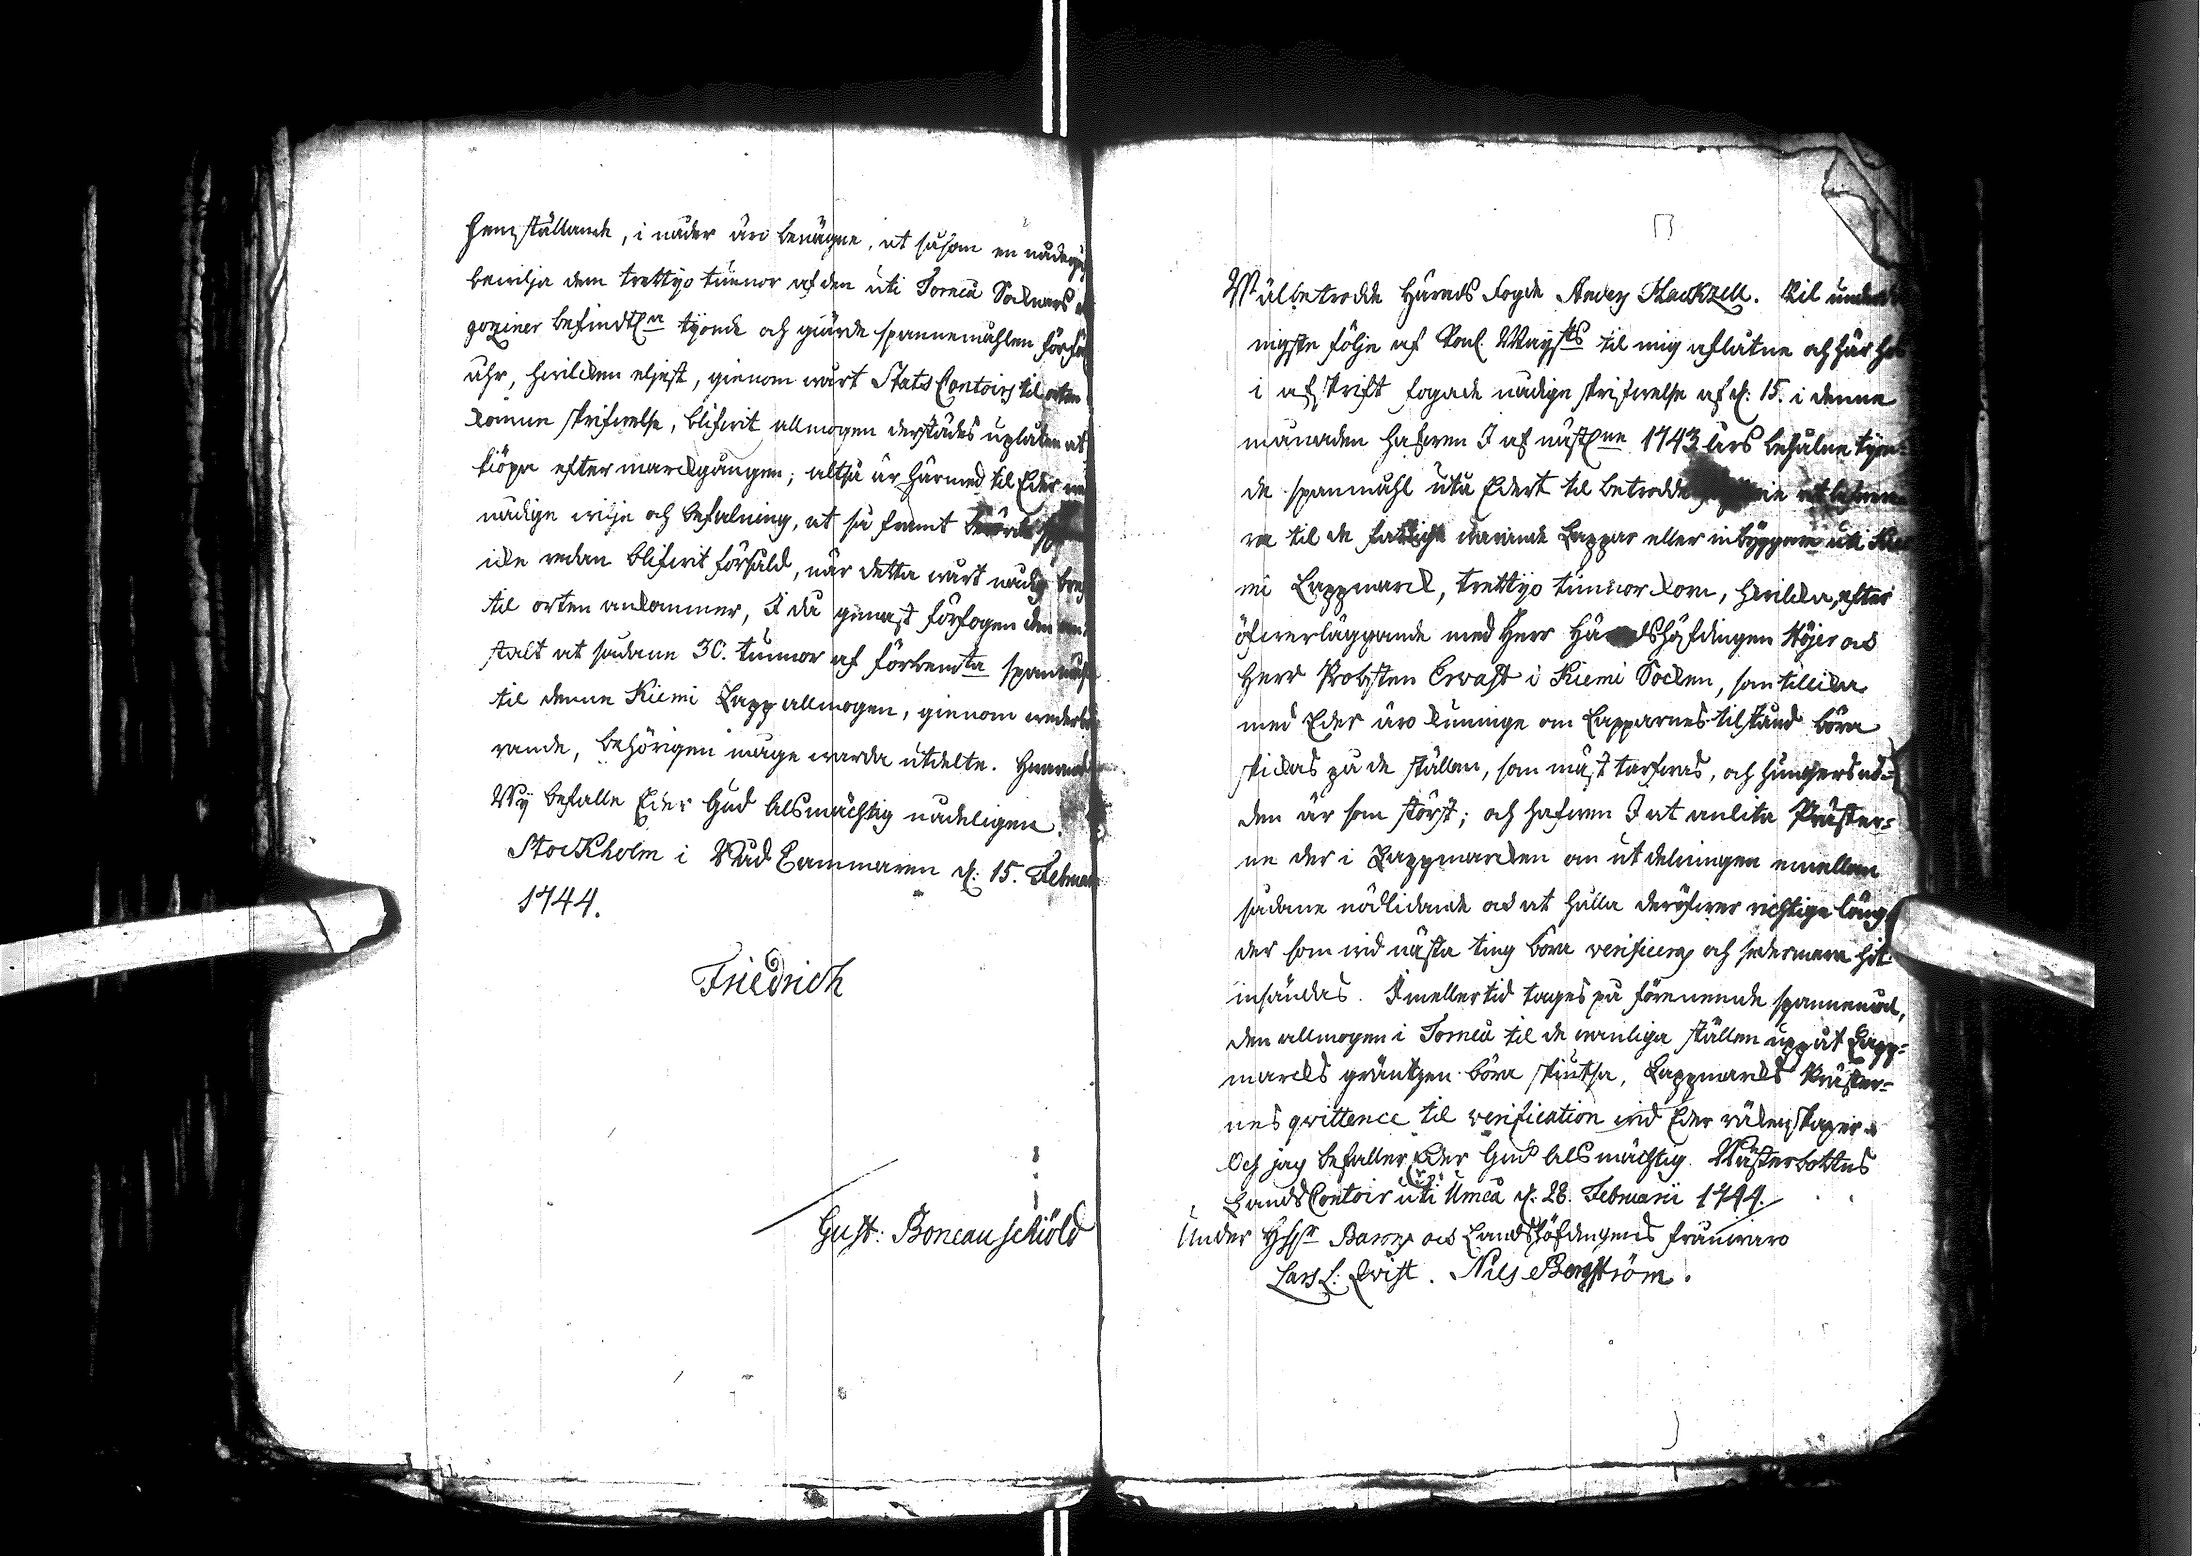 hemställande, i nåder äro benägne, at såsom en
bevilja dem trettijo tunnor af den uti Torneå Soknars
goziner befindtl:a tijonde och giärde spannemåhlen
åhr, hvilken eljest, gienom vårt Stats Contoirs til orten
komne skrifwelse, blifwit allmogen derstädes uplåten at
kiöpa efter marckgången; altså är härmed til Eder
nådige wilje och befalning, at så framt
icke redan blifwit försåld, när detta wårt nådig bref
til orten ankommer, I då genast förfogen den an-
stalt at sådane 30. tunnor af förbem:ta
til denne Kiemi Lapp allmogen, gienom wederbö-
rande, behörigen måge warda utdelte.
Wij befalle Eder Gud Alsmächtig nådeligen.
Stockholm i Råd Cammaren d: 15. Februarii
1744.
Friedrich
Gust: Boneauschiöld
Wälbetrodde Härads Fogde Anders Hackzell. Til underdå-
nigste följe af Konl. Maij:ts til mig aflåtne och här hos
i afskrift fogade nådige skrifwelse af d: 15. i denne
månaden hafwen I af nästl:ne 1743 års behålne tijon-
de spanmåhl utu Edert til betrodde
ra til de fattige warande Lappar eller inbyggare uti Kie
mi Lappmarck, trettijo tunnor korn, hvilcka, efter
öfwerläggande med Herr Häradshöfdingen Höijer och
Herr Probsten Ervast i Kiemi Socken, som tillika
med Eder äro kunnige om Lapparnes tilstånd böra
skickas på de ställen, som mäst tarfwas, och hungersnö-
den är som störst; och hafwen I at anlita Präster-
ne der i Lappmarcken om utdelningen emellan
sådane nödlidande och at hålla deröfwer richtige läng-
der som wid nästa ting böra verificeras och sedermera hit
insändas. Imellertid tages på förenemde spannemåhl,
den allmogen i Torneå til de wanliga ställen uppåt Lapp-
marcks gräntzen böra skiutsa, Lappmarcks Präster-
nes qvittence til verification wid Eder räkenskaper
Och jag befaller Eder Gud Alsmächtig. Wästerbottns
Lands Contoir uti Umeå d. 28. Februarii 1744.
Under H:ss:r Barons och Landshöfdingens frånwaro
Lars L: Qvist. Nils Bergström.